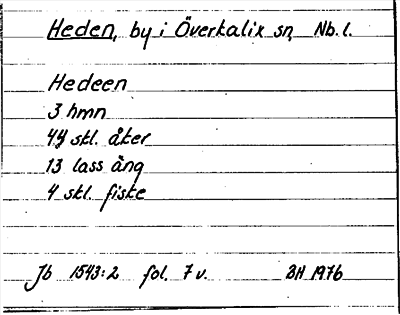 Heden, by i Överkalix sn, Nb. l.
Hedeen
3 hmn
skl. åker
13 lass äng
4 skl. fiske
Jb 1543:2 fol. 7 v. BH 1976